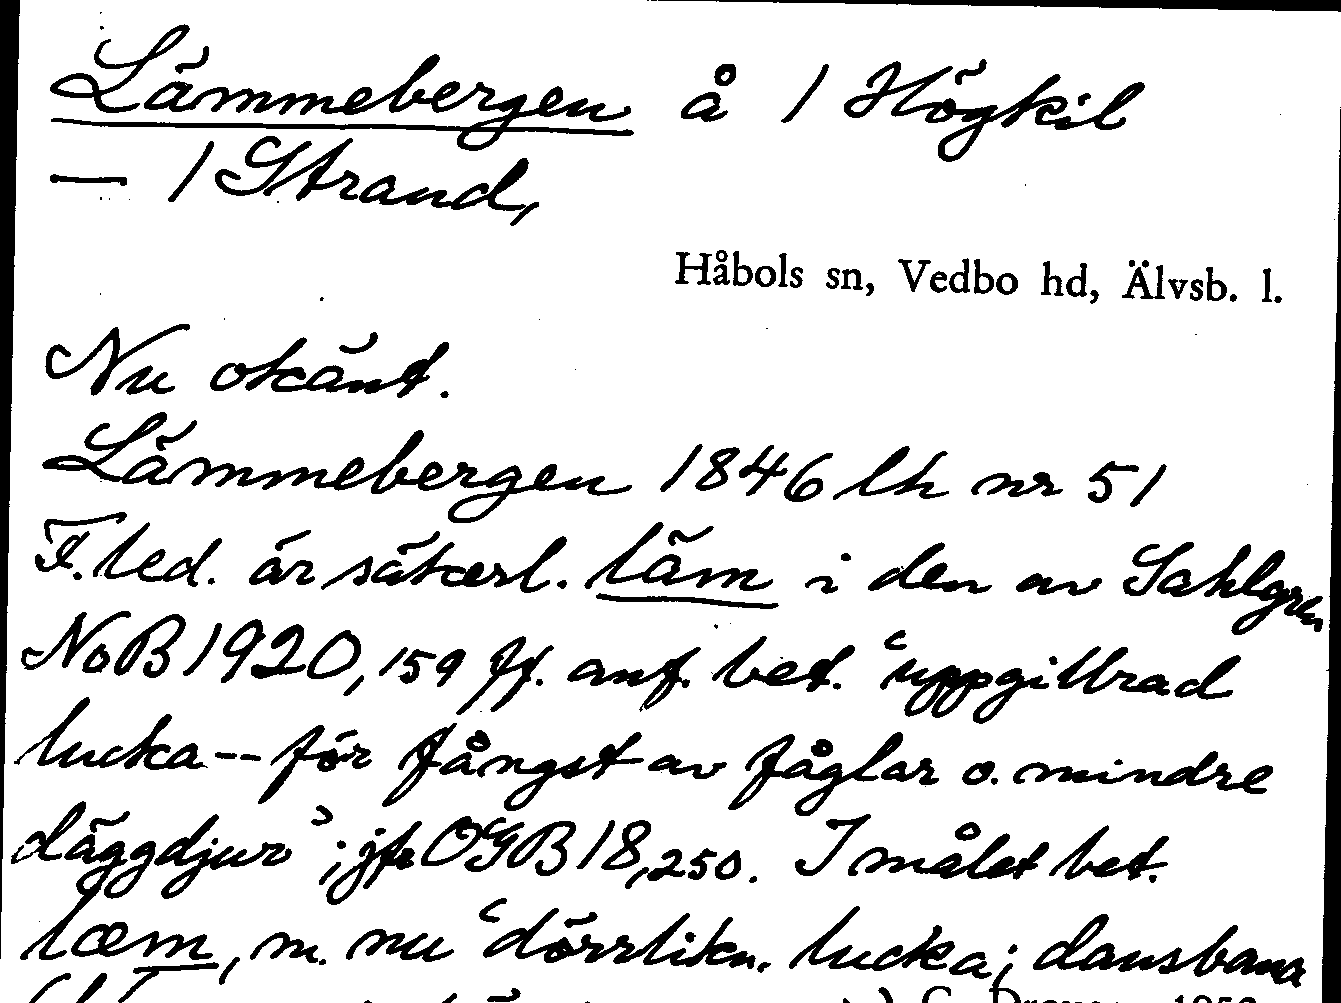 Lämmebergen å 1 Högkil
— 1 Strand,
Håbols sn, Vedbo hd, Älvsb. l.
Nu okänt.
Lämmebergen 1846 lh nr 51
F.led. är säkerl. läm i den av Sahlgren
NoB 1920, 159 ff. anf. bet. "uppgillrad
lucka -- för fångst av fåglar o. mindre
däggdjur"; jfr OGB 18, 250. I målet bet.
læm, m. nu "dörrlikn. lucka; dansbana